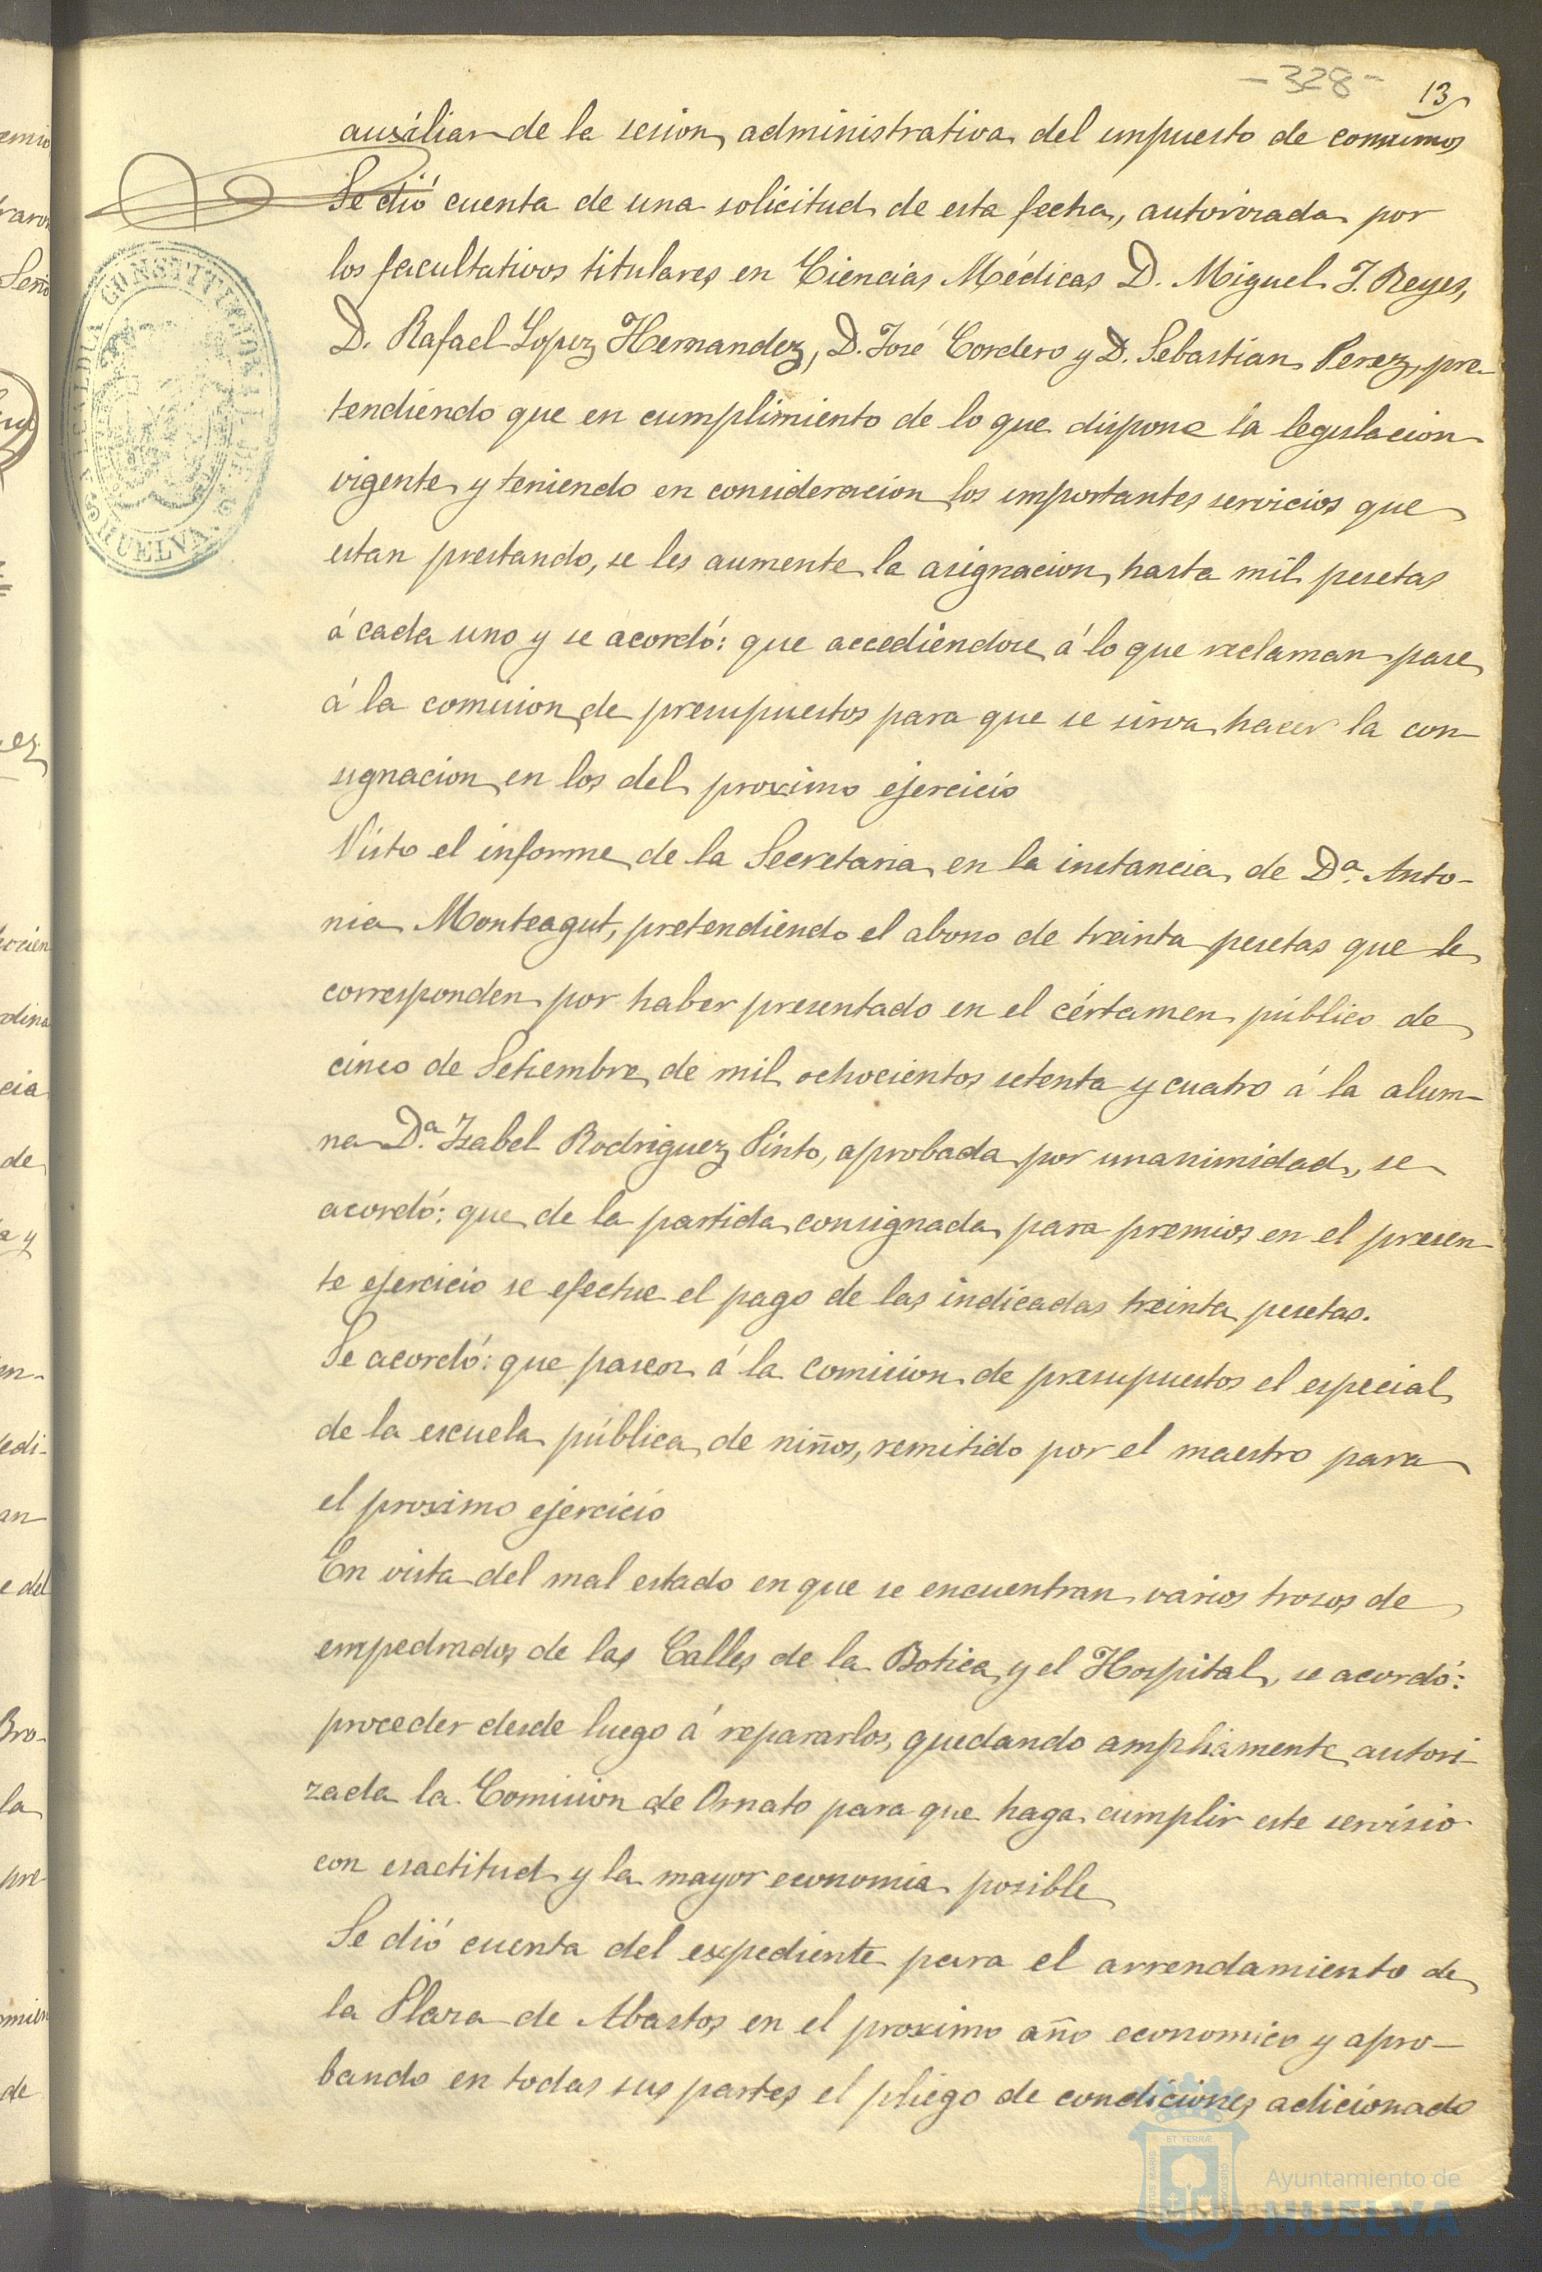 -328-
13
auxiliar de la sesion administrativa del impuesto de consumos
Se dió cuenta de una solicitud de esta fecha, autorizada por
los facultativos titulares en Ciencias Médicas D. Miguel J. Reyes,
D. Rafael Lopez Hernandez, D. José Cordero y D. Sebastian Perez, pre-
tendiendo que en cumplimiento de lo que dispone la legislacion
vigente y teniendo en consideracion los importantes servicios que
estan prestando, se les aumente la asignacion hasta mil pesetas
á cada uno y se acordó: que accediendose á lo que reclaman pase
á la comision de presupuestos para que se sirva hacer la con-
signacion en los del proximo ejercicio
Visto el informe de la Secretaria en la instancia de Dª. Anto-
nia Monteagut, pretendiendo el abono de treinta pesetas que le
corresponden por haber presentado en el cértamen público de
cinco de Setiembre de mil ochocientos setenta y cuatro á la alum-
na Dª. Isabel Rodriguez Pinto, aprobada por unanimidad, se
acordó: que de la partida consignada para premios en el presen-
te ejercicio se efectue el pago de las indicadas treinta pesetas.
Se acordó: que pasen á la comision de presupuestos el especial
de la escuela pública de niños, remitido por el maestro para
el proximo ejercicio
En vista del mal estado en que se encuentran varios trozos de
empedrados de las Calles de la Botica y el Hospital, se acordó:
proceder desde luego á repararlos, quedando ampliamente autori-
zada la Comision de Ornato para que haga cumplir este servisio
con esactitud y la mayor economia posible
Se dió cuenta del expediente para el arrendamiento de
la Plaza de Abastos en el proximo año economico y apro-
bando en todas sus partes el pliego de condiciones adicionado
ALCALDIA CONSTITUCIONAL DE
HUELVA.
Ayuntamiento de
HUELVA